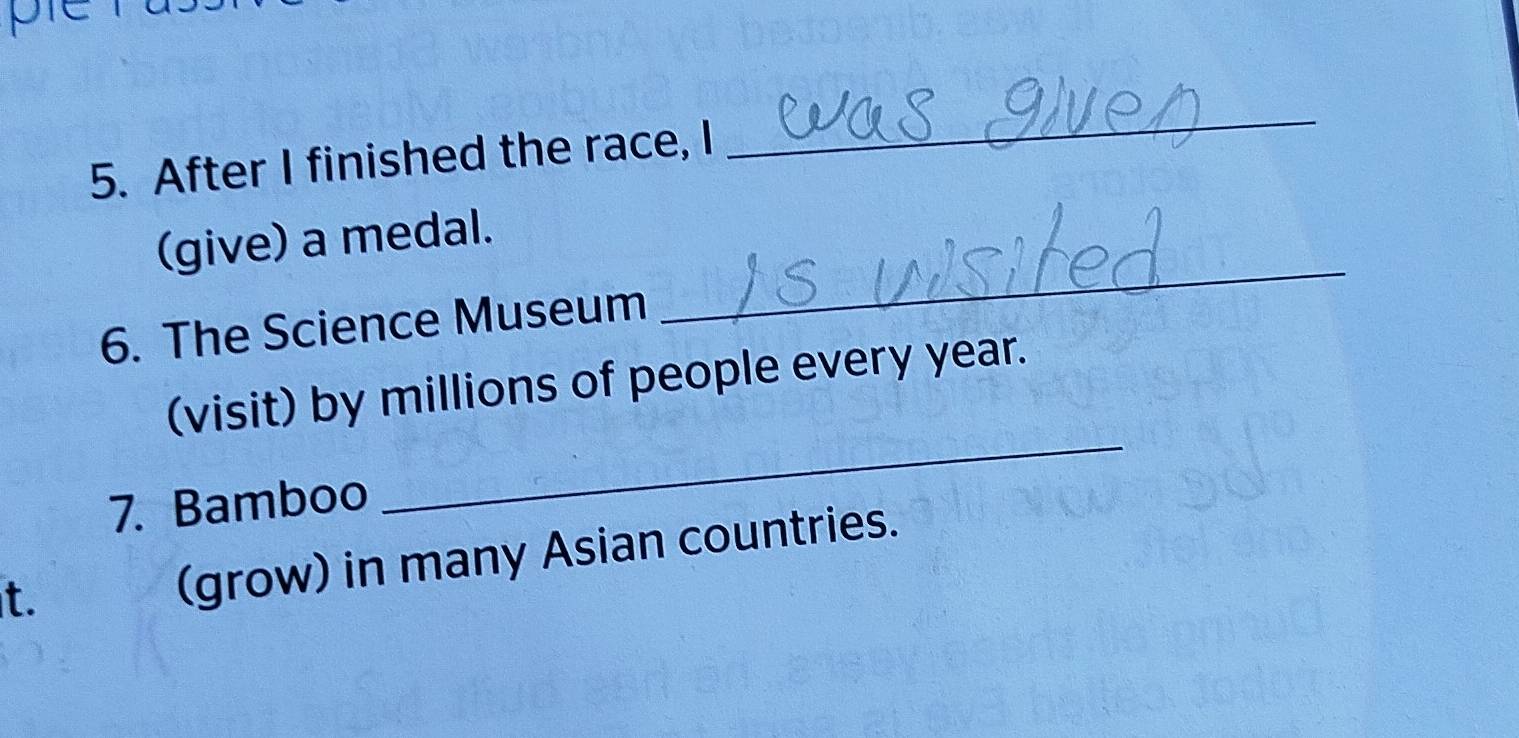 5. After I finished the race, I was given
(give) a medal.
6. The Science Museum is visited
(visit) by millions of people every year.
7. Bamboo
(grow) in many Asian countries.
t.